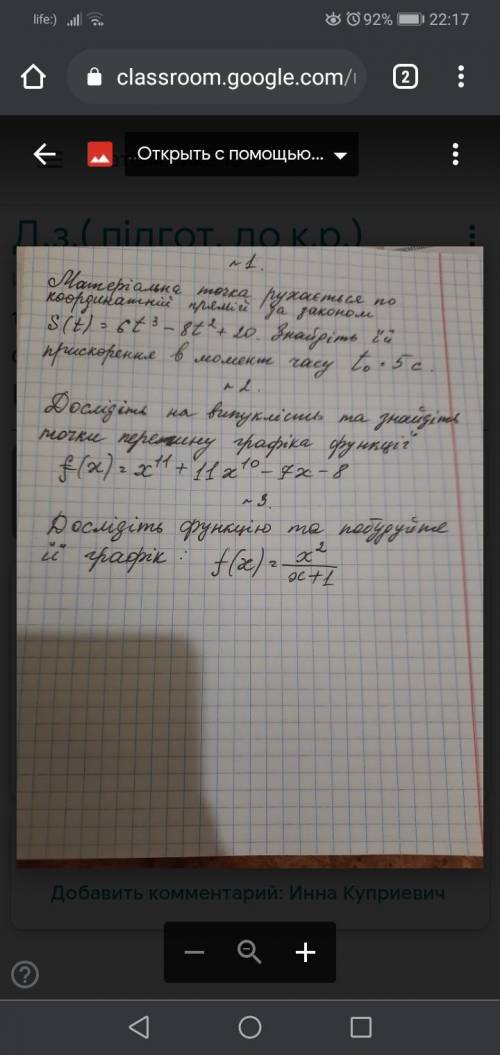 life:) 92% 22:17
classroom.google.com/ 2
Открыть с помощью...
Д.з.( підгот. до к.р.)
~ 1.
Матеріальна точка рухається по
координатній прямій за законом
S(t) = 6t³ - 8t² + 20. Знайдіть її
прискорення в момент часу t₀ = 5 с.
~ 2.
Дослідіть на випуклість та знайдіть
точки перегину графіка функції
f(x) = x¹¹ + 11x¹⁰ - 7x - 8
~ 3.
Дослідіть функцію та побудуйте
її графік : f(x) = x²/x+1
Добавить комментарий: Инна Куприевич